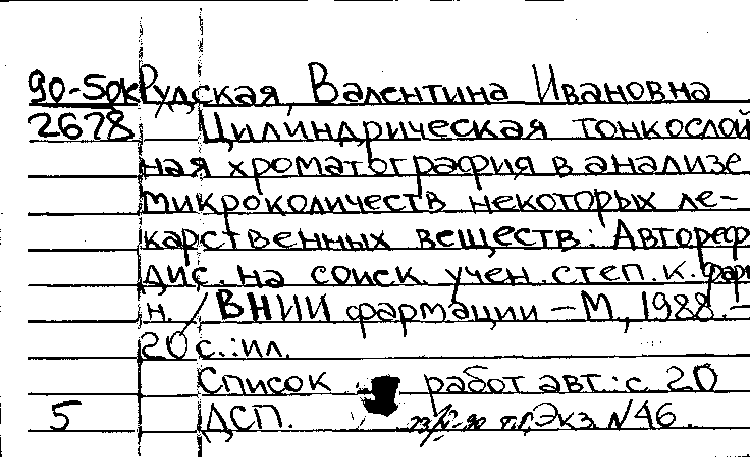 90-5ок Рудская, Валентина Ивановна
2678 Цилиндрическая тонкослой
ная хроматография в анализе
микроколичеств некоторых ле-
карственных веществ: Автореф
дис. на соиск. учен. степ. к. фар
н. / ВНИИ фармации – М., 1988. –
20 с.: ил.
Список работ авт.: с. 20
5 ДСП. Экз. N46.